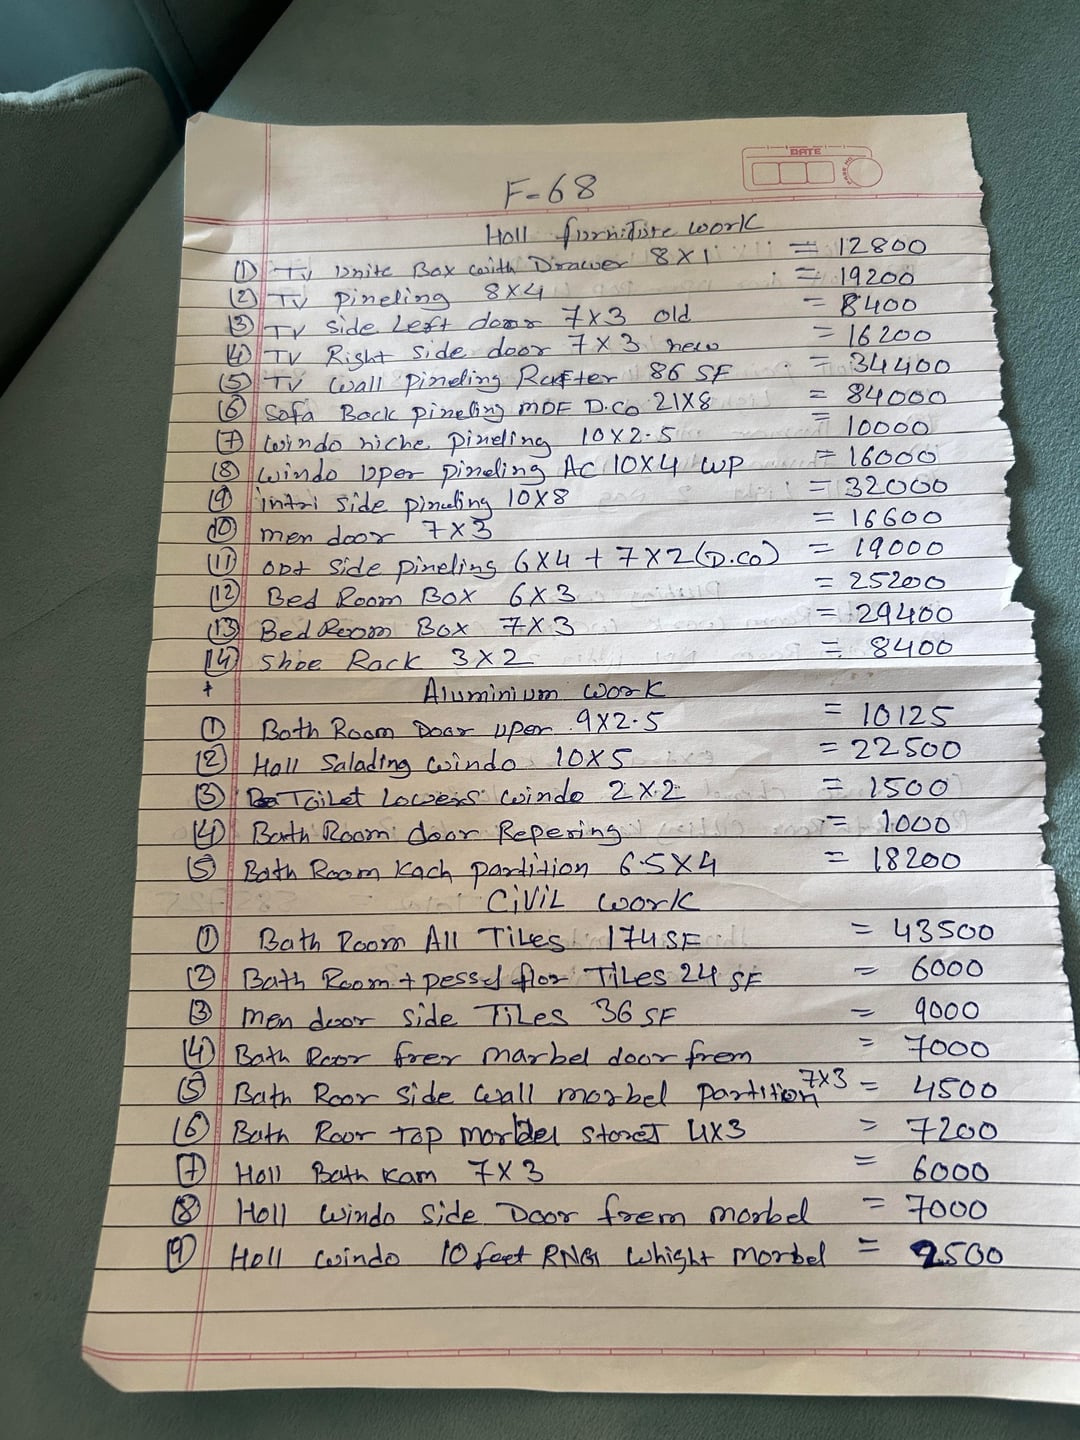 DATE
F-68
Holl furniture work
(1) TV Unite Box with Drawer 8X1 = 12800
(2) TV pineling 8X4 = 19200
(3) TV side Left door 7X3 old = 8400
(4) TV Right side door 7X3 new = 16200
(5) TV wall pineling Rafter 86 SF = 34400
(6) Sofa Back pineling MDF D.Co 21X8 = 84000
(7) windo niche pineling 10X2.5 = 10000
(8) windo Uper pineling AC 10X4 WP = 16000
(9) intri side pineling 10X8 = 32000
(10) men door 7X3 = 16600
(11) opt side pineling 6X4 + 7X2 (D.Co) = 19000
(12) Bed Room Box 6X3 = 25200
(13) Bed Room Box 7X3 = 29400
(14) Shoe Rack 3X2 = 8400
+ Aluminium work
(1) Bath Room Door uper 9X2.5 = 10125
(2) Holl Salading windo 10X5 = 22500
(3) Toilet Lowers windo 2X2 = 1500
(4) Bath Room door Repering = 1000
(5) Bath Room Kach partition 6.5X4 = 18200
CiViL work
(1) Bath Room All TiLes 174 SF = 43500
(2) Bath Room + flor TiLes 24 SF = 6000
(3) men door side TiLes 36 SF = 9000
(4) Bath Roor frer marbel door frem = 7000
(5) Bath Roor side wall morbel partition 7X3 = 4500
(6) Bath Roor Top morbel storet 4X3 = 7200
(7) Holl Bath Kam 7X3 = 6000
(8) Holl windo side Door frem morbel = 7000
(9) Holl windo 10 feet RNG Whight morbel = 2500